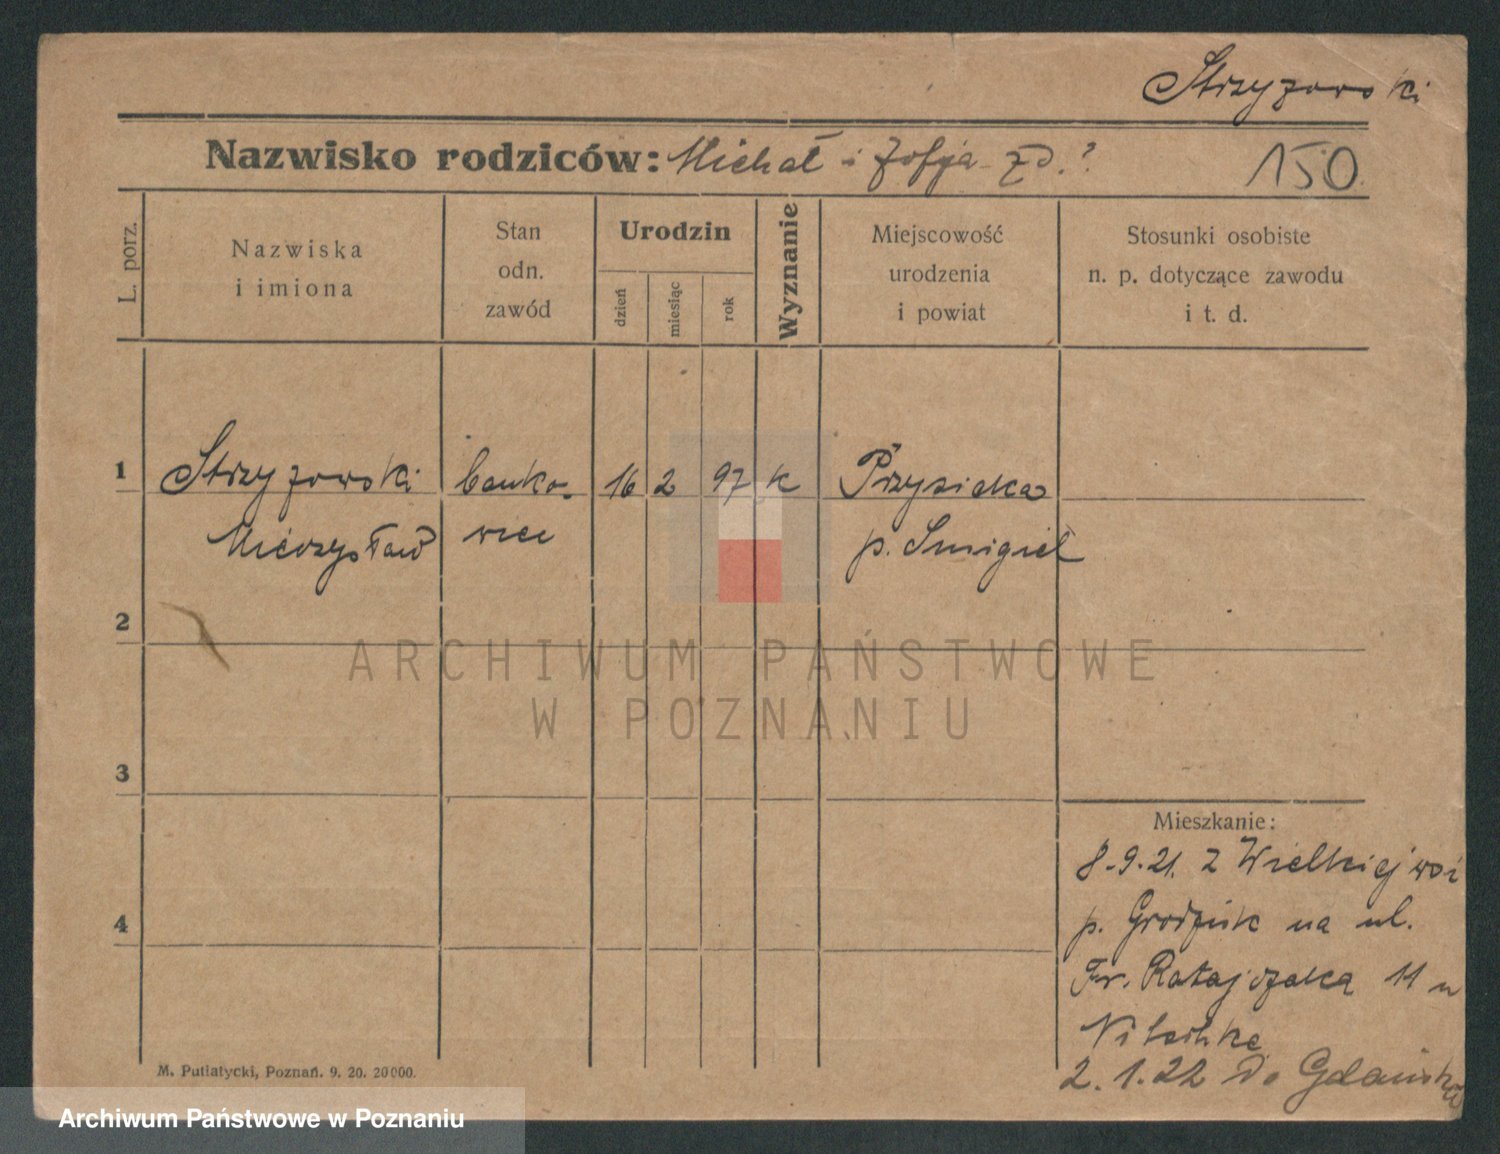 Strzyżowski
Nazwisko rodziców: Michał i Zofja zd.?
150
L. porz.
Nazwiska
i imiona
Stan
odn.
zawód
Urodzin
dzień
miesiąc
rok
Wyznanie
Miejscowość
urodzenia
i powiat
Stosunki osobiste
n. p. dotyczące zawodu
i t. d.
1
Strzyżowski
Mieczysław
banko-
wiec
16 2 97 k
Przysieka
p. Śmigiel
2
3
4
Mieszkanie:
8.9.21. z Wielkiej wsi
p. Grodzisk na ul.
Fr. Ratajczaka 11 u
2.1.22 do Gdańska
M. Putiatycki, Poznań. 9. 20. 20000.
ARCHIWUM PAŃSTWOWE
W POZNANIU
Archiwum Państwowe w Poznaniu